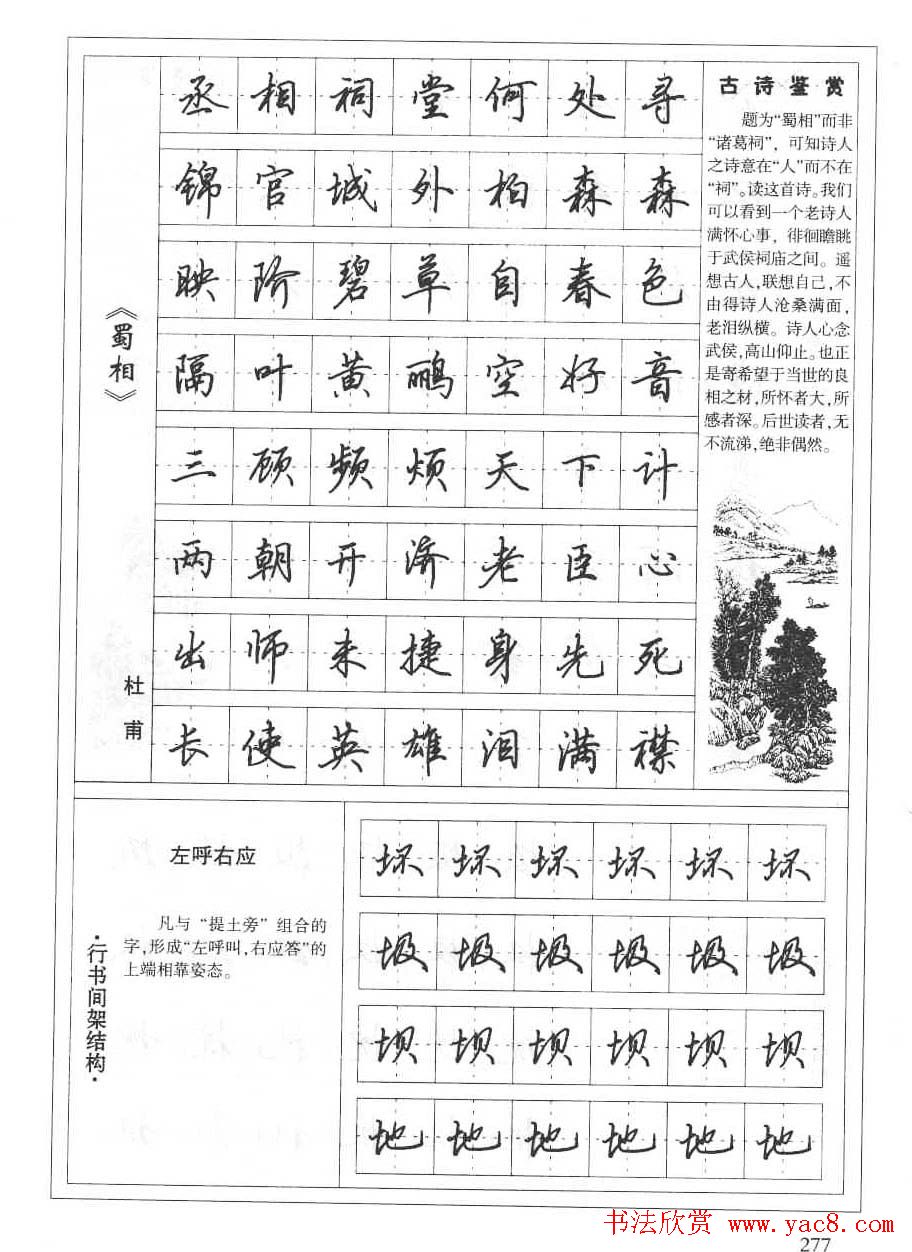 《蜀相》
杜甫
丞相祠堂何处寻
锦官城外柏森森
映阶碧草自春色
隔叶黄鹂空好音
三顾频烦天下计
两朝开济老臣心
出师未捷身先死
长使英雄泪满襟
古诗鉴赏
题为“蜀相”而非
“诸葛祠”，可知诗人
之诗意在“人”而不在
“祠”。读这首诗。我们
可以看到一个老诗人
满怀心事，徘徊瞻眺
于武侯祠庙之间。遥
想古人,联想自己,不
由得诗人沧桑满面，
老泪纵横。诗人心念
武侯,高山仰止。也正
是寄希望于当世的良
相之材,所怀者大,所
感者深。后世读者,无
不流涕,绝非偶然。
·行书间架结构·
左呼右应
凡与“提土旁”组合的
字,形成“左呼叫,右应答”的
上端相靠姿态。
坏坏坏坏坏坏
圾圾圾圾圾圾
坝坝坝坝坝坝
地地地地地地
书法欣赏 www.yac8.com
277